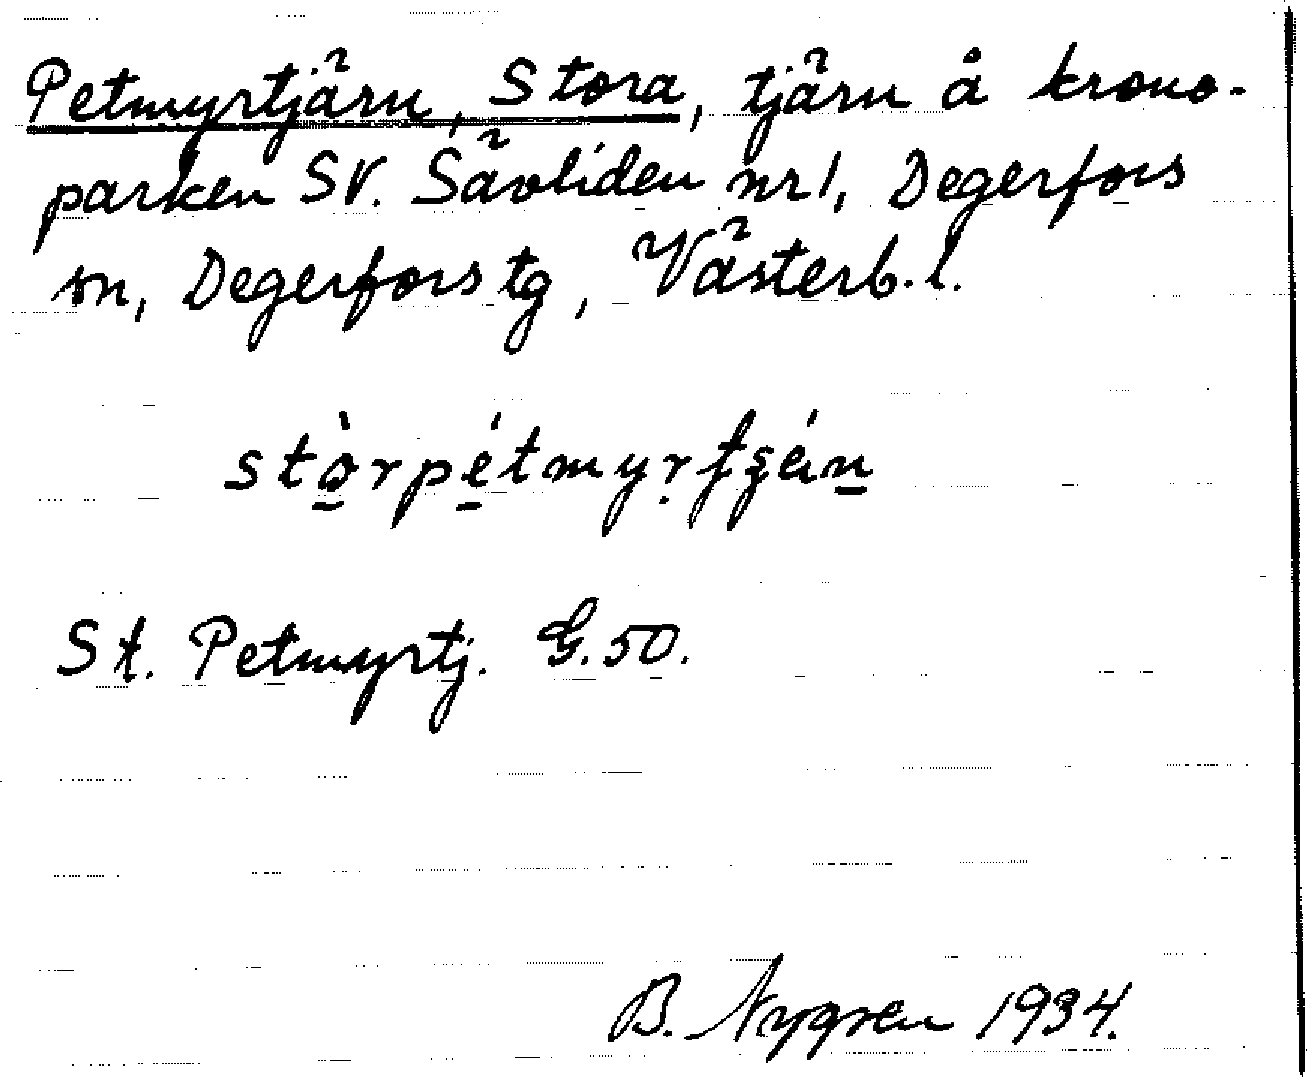 Petmyrtjärn, Stora, tjärn å krono-
parken SV. Sävliden nr 1, Degerfors
sn, Degerfors tg, Västerb. l.
stòrpétmyrtʂén
St. Petmyrtj. G. 50.
B. Nygren 1934.